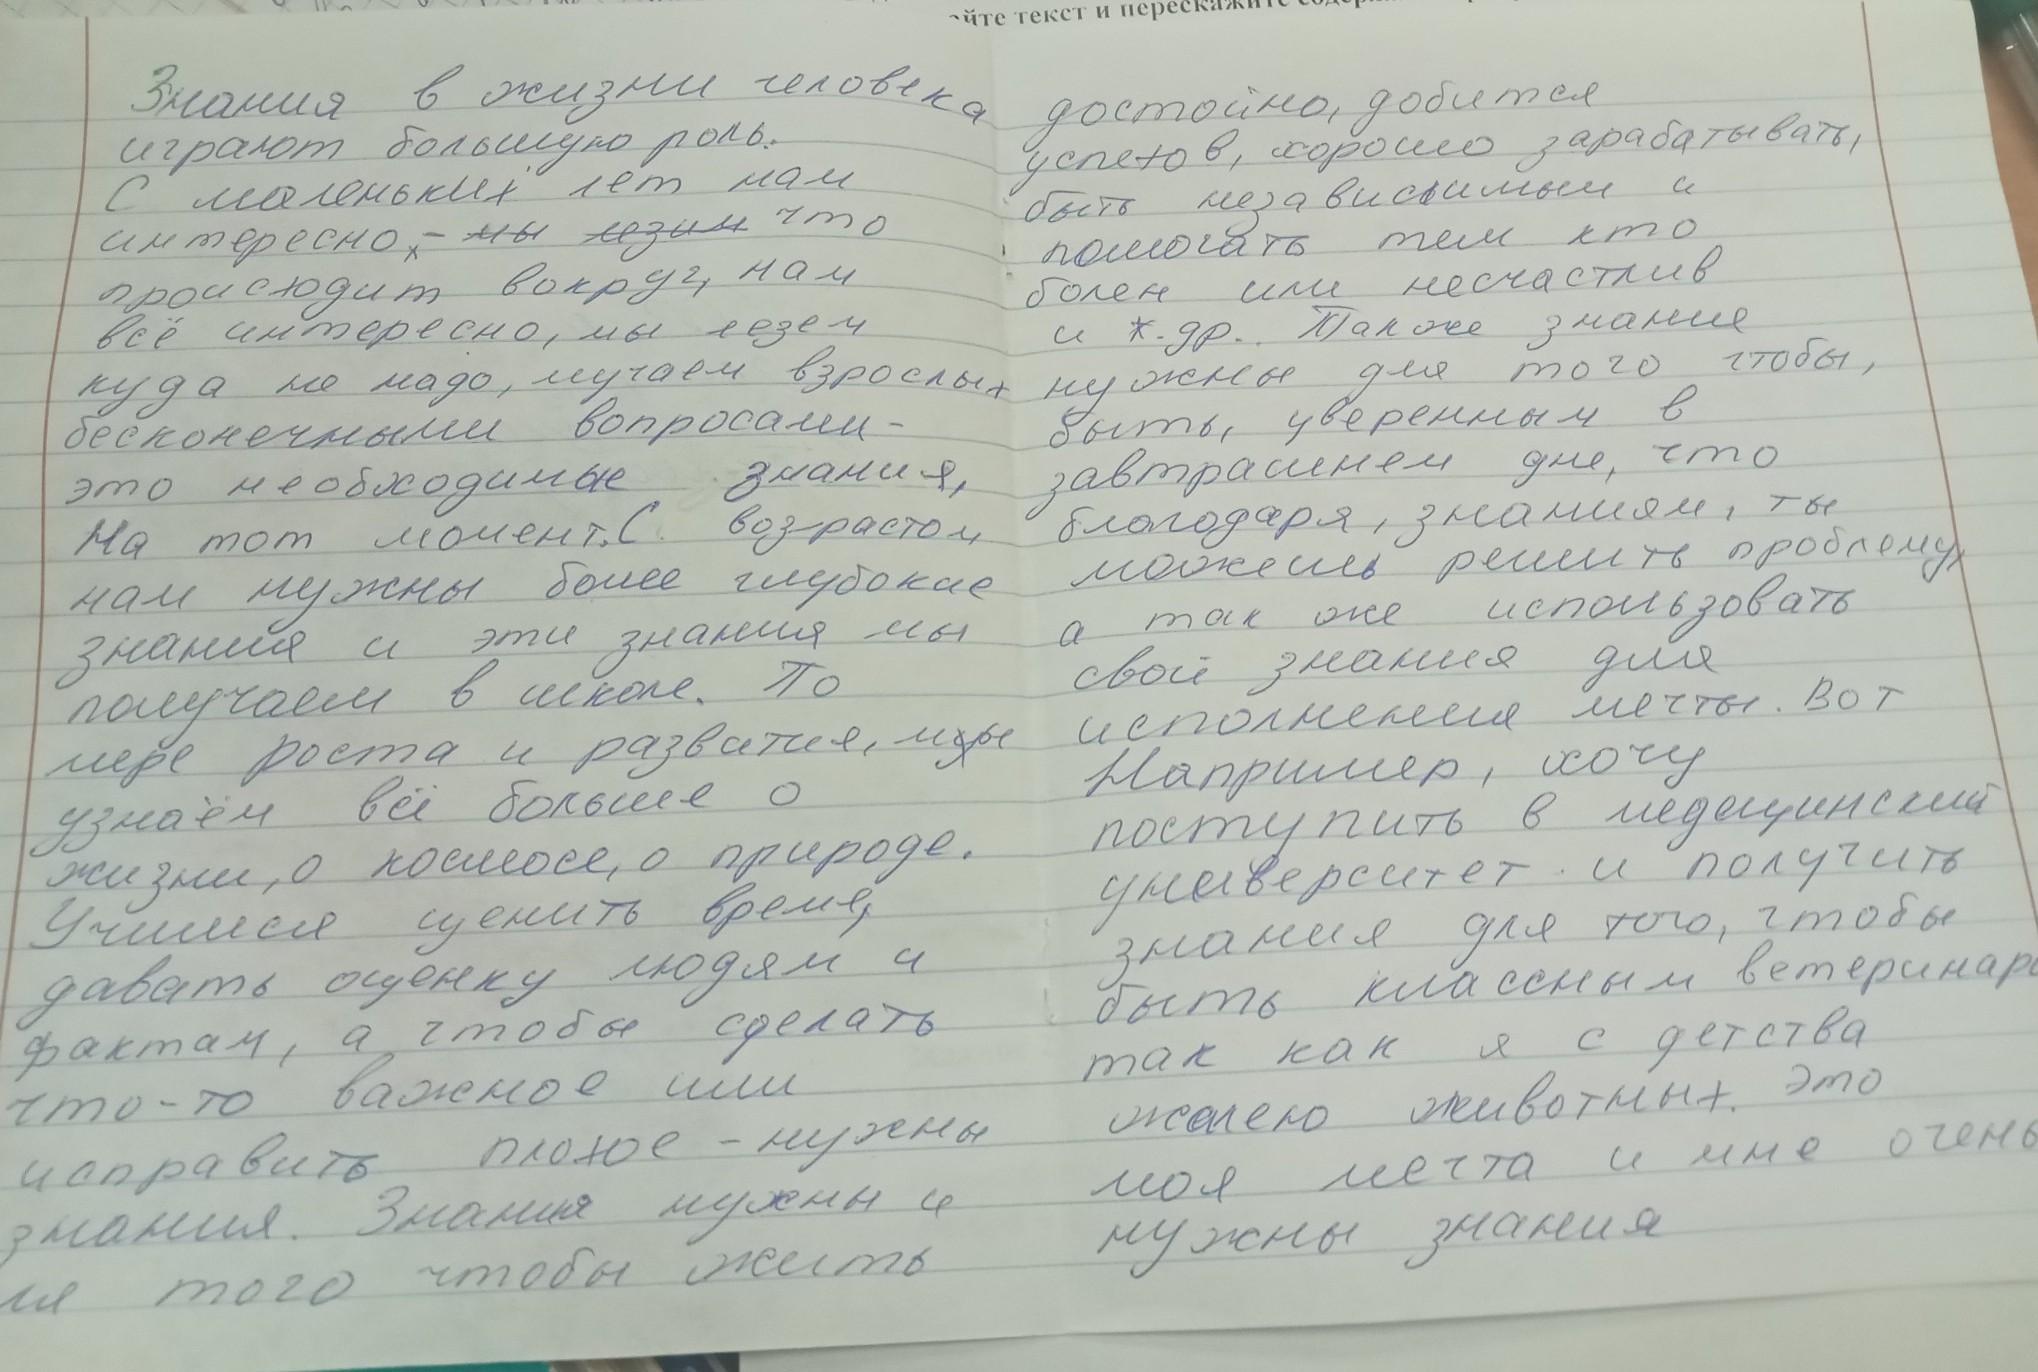 айте текст и перескажите
Знания в жизни человека
играют большую роль.
С маленьких лет нам
интересно, - мы лезим что
происходит вокруг, нам
всё интересно, мы лезем
куда не надо, мучаем взрослых
бесконечными вопросами -
это необходимые знания,
На тот момент. С возрастом
нам нужны более глубокие
знания и эти знания мы
получаем в школе. По
мере роста и развития, мы
узнаём всё больше о
жизни, о космосе, о природе.
Учимся ценить время,
давать оценку людям и
фактам, а чтобы сделать
что-то важное или
исправить плохое - нужны
знания. Знания нужны и
ля того чтобы жить
достойно, добится
успехов, хорошо зарабатывать,
быть независимым и
помогать тем кто
болен или несчастлив
и т.др. Также знание
нужны для того чтобы,
быть, уверенным в
завтрашнем дне, что
благодаря, знаниям, ты
можешь решить проблему,
а так же использовать
свои знания для
исполнения мечты. Вот
Например, хочу
поступить в медецинский
университет и получить
знания для того, чтобы
быть классным ветеринаро
так как я с детства
жалею животных. Это
моя мечта и мне очень
нужны знания